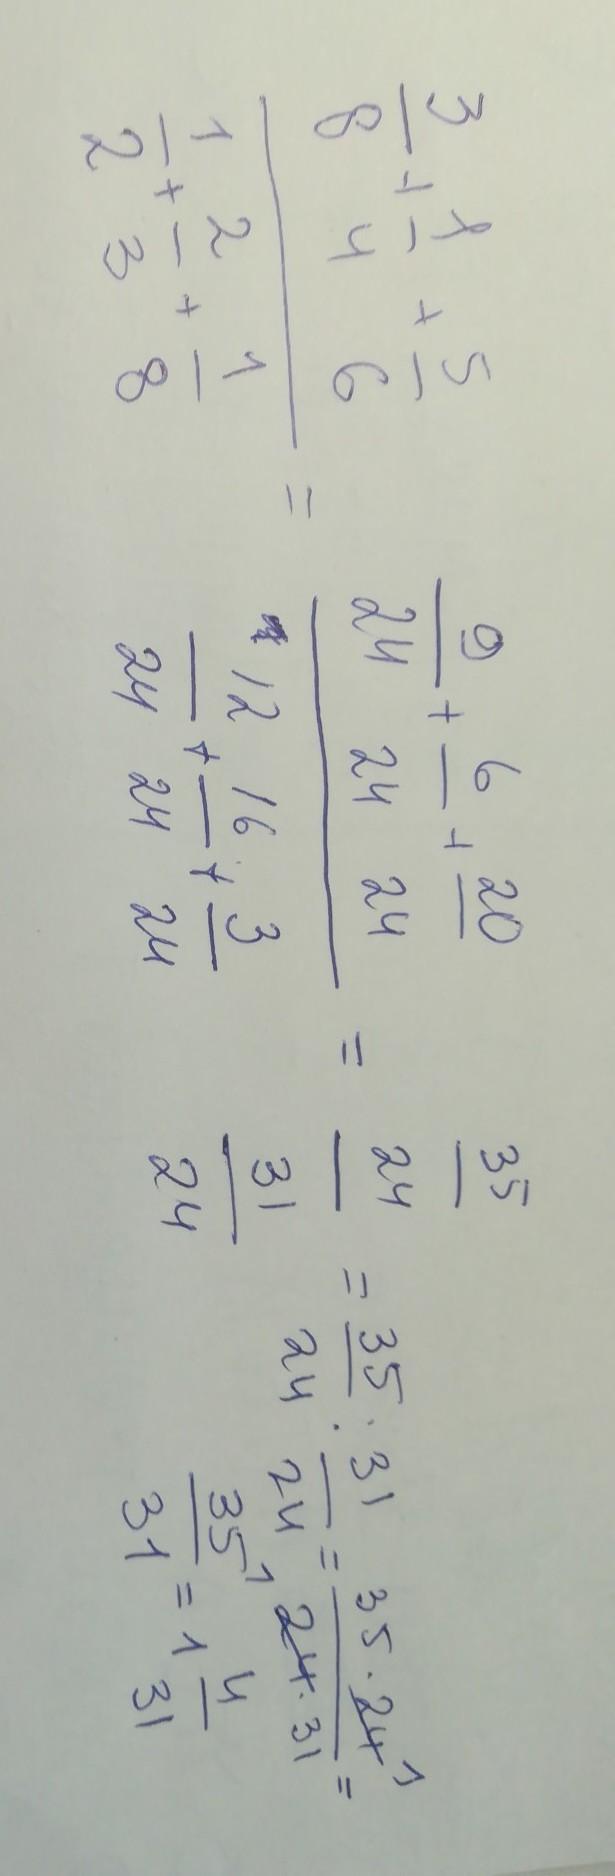 3/8 + 1/4 + 5/6
1/2 + 2/3 + 1/8
=
9/24 + 6/24 + 20/24
12/24 + 16/24 + 3/24
=
35/24
31/24
= 35/24 : 31/24 = 35 · 24 1 / 1 24 · 31 =
35/31 = 1 4/31